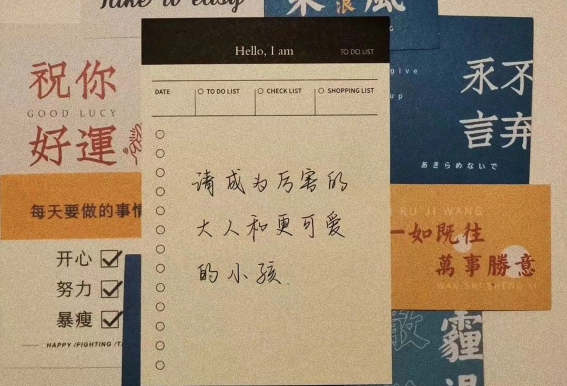 Take it easy
乘浪風
Hello, I am
TO DO LIST
DATE
TO DO LIST
CHECK LIST
SHOPPING LIST
请成为厉害的
大人和更可爱
的小孩.
祝你
GOOD LUCY
好運
每天要做的事情
开心
努力
暴瘦
HAPPY /FIGHTING /T
give
up
永不
言弃
あきらめないで
RU JI WANG
一如既往
萬事勝意
WAN SHI SHENG YI
霾